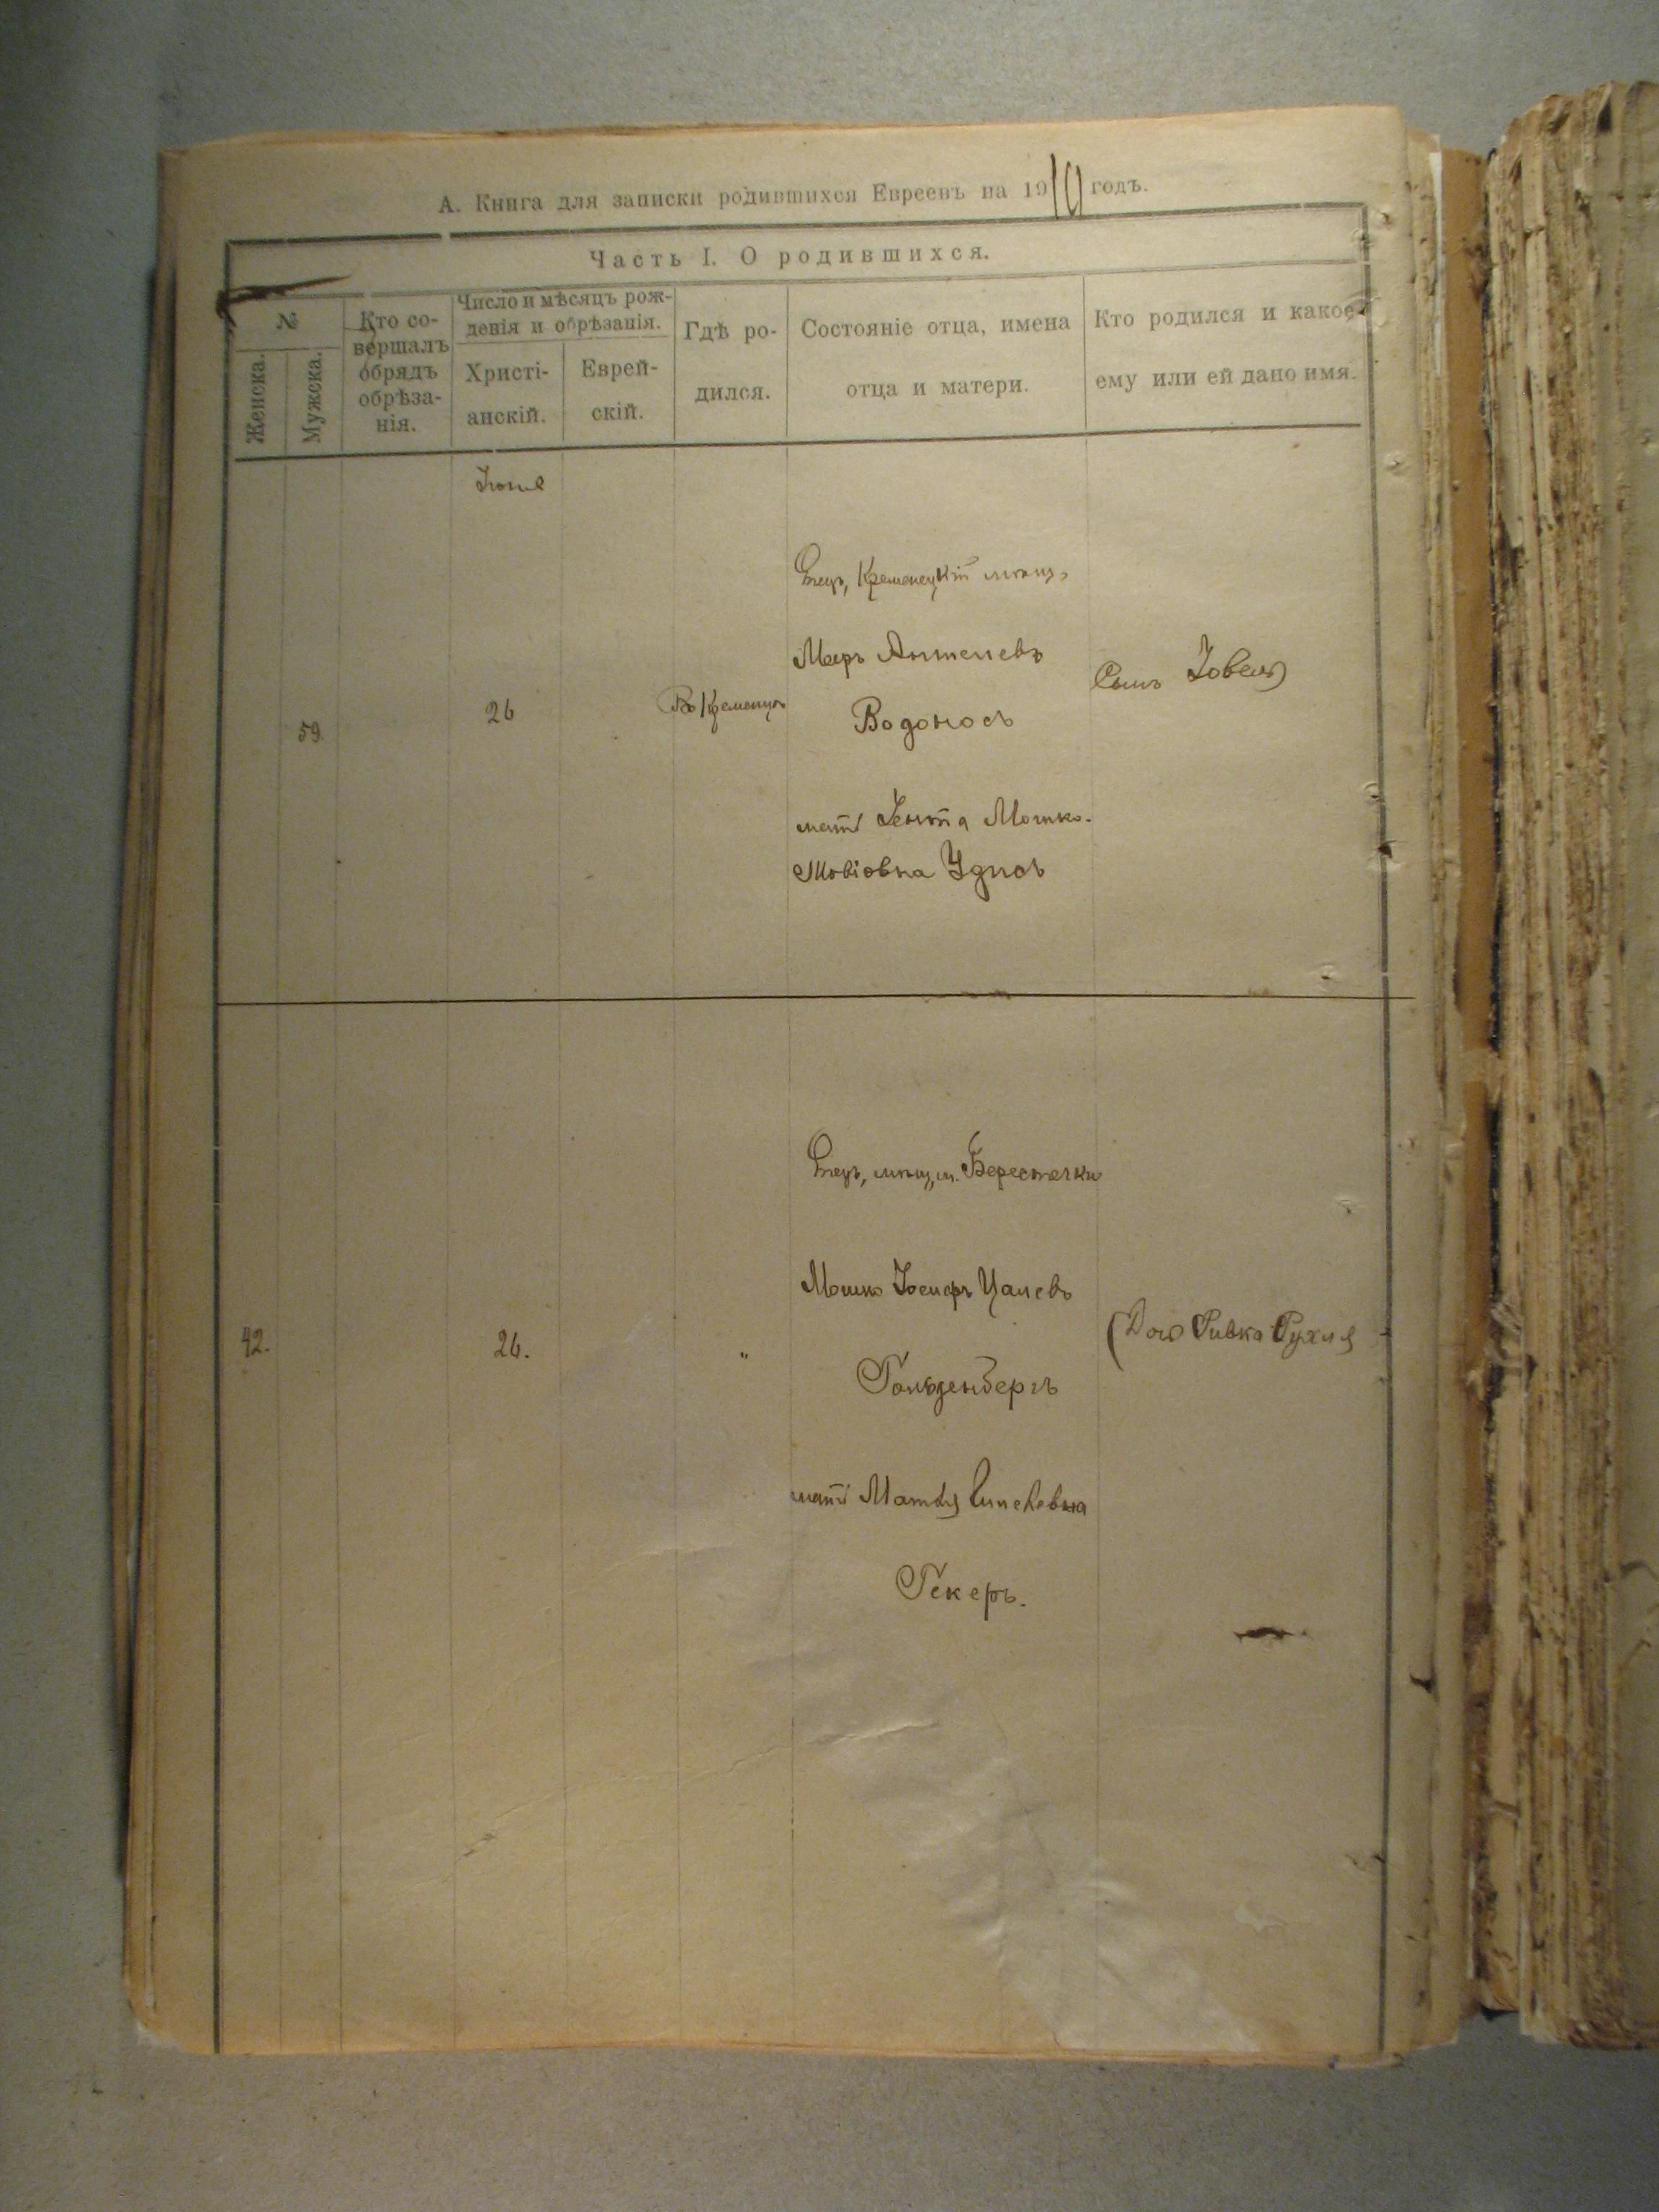 А. Книга для записки родившихся Евреевъ на 1919 годъ.
Часть I. О родившихся.
№
Женска.
Мужска.
Кто со-
вершалъ
обрядъ
обрѣза-
нія.
Число и мѣсяцъ рож-
денія и обрѣзанія.
Христі-
анскій.
Еврей-
скій.
Гдѣ ро-
дился.
Состояніе отца, имена
отца и матери.
Кто родился и какое
ему или ей дано имя.
59.
26
Въ Кременцѣ
Отецъ, Кременецкій мѣщ.
Мееръ
Водоносъ
мать Мошко-
Товіовна
Сынъ Іовель
42.
26.
"
Отецъ, мѣщ. м. Берестечки
Мошко Іосифъ Цалевъ
Гольденбергъ
мать
Гекеръ.
Дочь Ривка Рухля